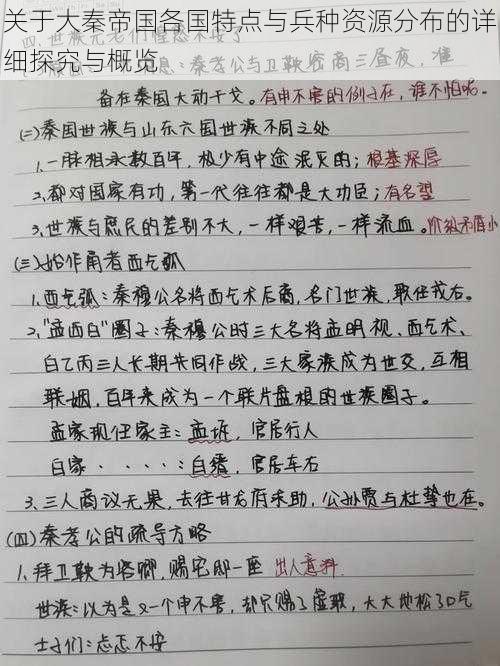 关于大秦帝国各国特点与兵种资源分布的详
细探究与概览
四、世族元老们惶恐不安了
息：秦孝公与卫鞅密商三昼夜，准
备在秦国大动干戈。有申不害的例子在，谁不怕呢。
(二)秦国世族与山东六国世族不同之处
1.一脉相承数百年，极少有中途泯灭的；根基深厚
2.都对国家有功，第一代往往都是大功臣；有名望
3.世族与庶民的差别不大，一样艰苦，一样流血。阶级矛盾小
(三)始作甬者西乞弧
1.西乞弧：秦穆公名将西乞术后裔，名门世族，职任戎右。
2."孟西白"圈子：秦穆公时三大名将孟明视、西乞术、
白乙丙三人长期共同作战，三大家族成为世交，互相
联姻，百年来成为一个联片盘根的世族圈子。
孟家现任家主：孟坼，官居行人
白家·····：白缙，官居车右
3.三人商议无果，去往甘龙府求助，公孙贾与杜挚也在。
(四)秦孝公的疏导方略
1.拜卫鞅为客卿，赐宅邸一座 出人意料
世族：以为是又一个申不害，却只赐了虚职，大大地松了口气
士子们：忐忑不安